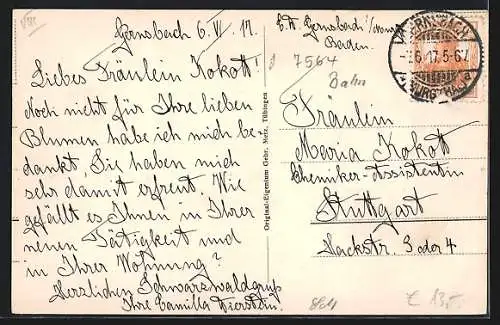 Gernsbach 6. VI. 17.
Liebes Fräulein Kokott!
Noch nicht für Ihre lieben
Blumen habe ich mich be-
dankt, Sie haben mich
sehr damit erfreut. Wie
gefällt es Ihnen in Ihrer
neuen Tätigkeit und
in Ihrer Wohnung?
Herzlichen Schwarzwaldgruß
Ihre Camilla
Original-Eigentum Gebr. Metz, Tübingen
Gernsbach
Baden.
7564
Bahn
GERNSBACH
6.17.5-6
Fräulein
Maria Kokott
Chemiker-Assistentin
Stuttgart
Neckstr. 3 oder 4
€ 13,-